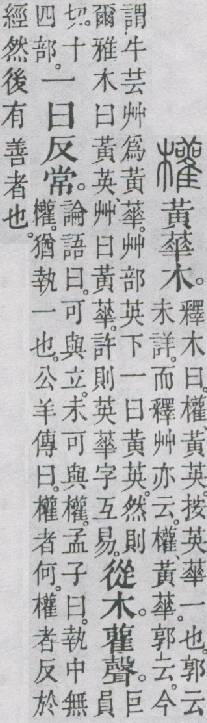 權 黃華木。釋木曰。權、黃英。按英華一也。郭云
未詳。而釋艸亦云。權、黃華。郭云。今
謂牛芸艸爲黃華。艸部英下一曰黃英。然則
爾雅木曰黃英、艸曰黃華。許則英華字互易。從木雚聲。巨
員
切。十
四部。一曰反常。論語曰。可與立。未可與權。孟子曰。執中無
權。猶執一也。公羊傳曰。權者何。權者反於
經然後有善者也。